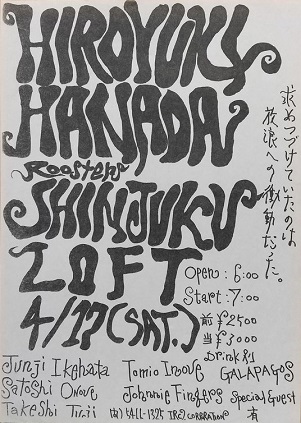 HIROYUKI
HANADA
Roosters
SHINJUKU
LOFT
4/17(SAT.)
求めつづけていたのは
放浪への衝動だった。
Open : 6:00
Start : 7:00
前 ¥2500
当 ¥3000
Drink別
Junji Ikehata
Satoshi Onoue
Takeshi
Tomio Inoue
Johnnie Fingers
GALAPAGOS
Special Guest
有
5411-1325